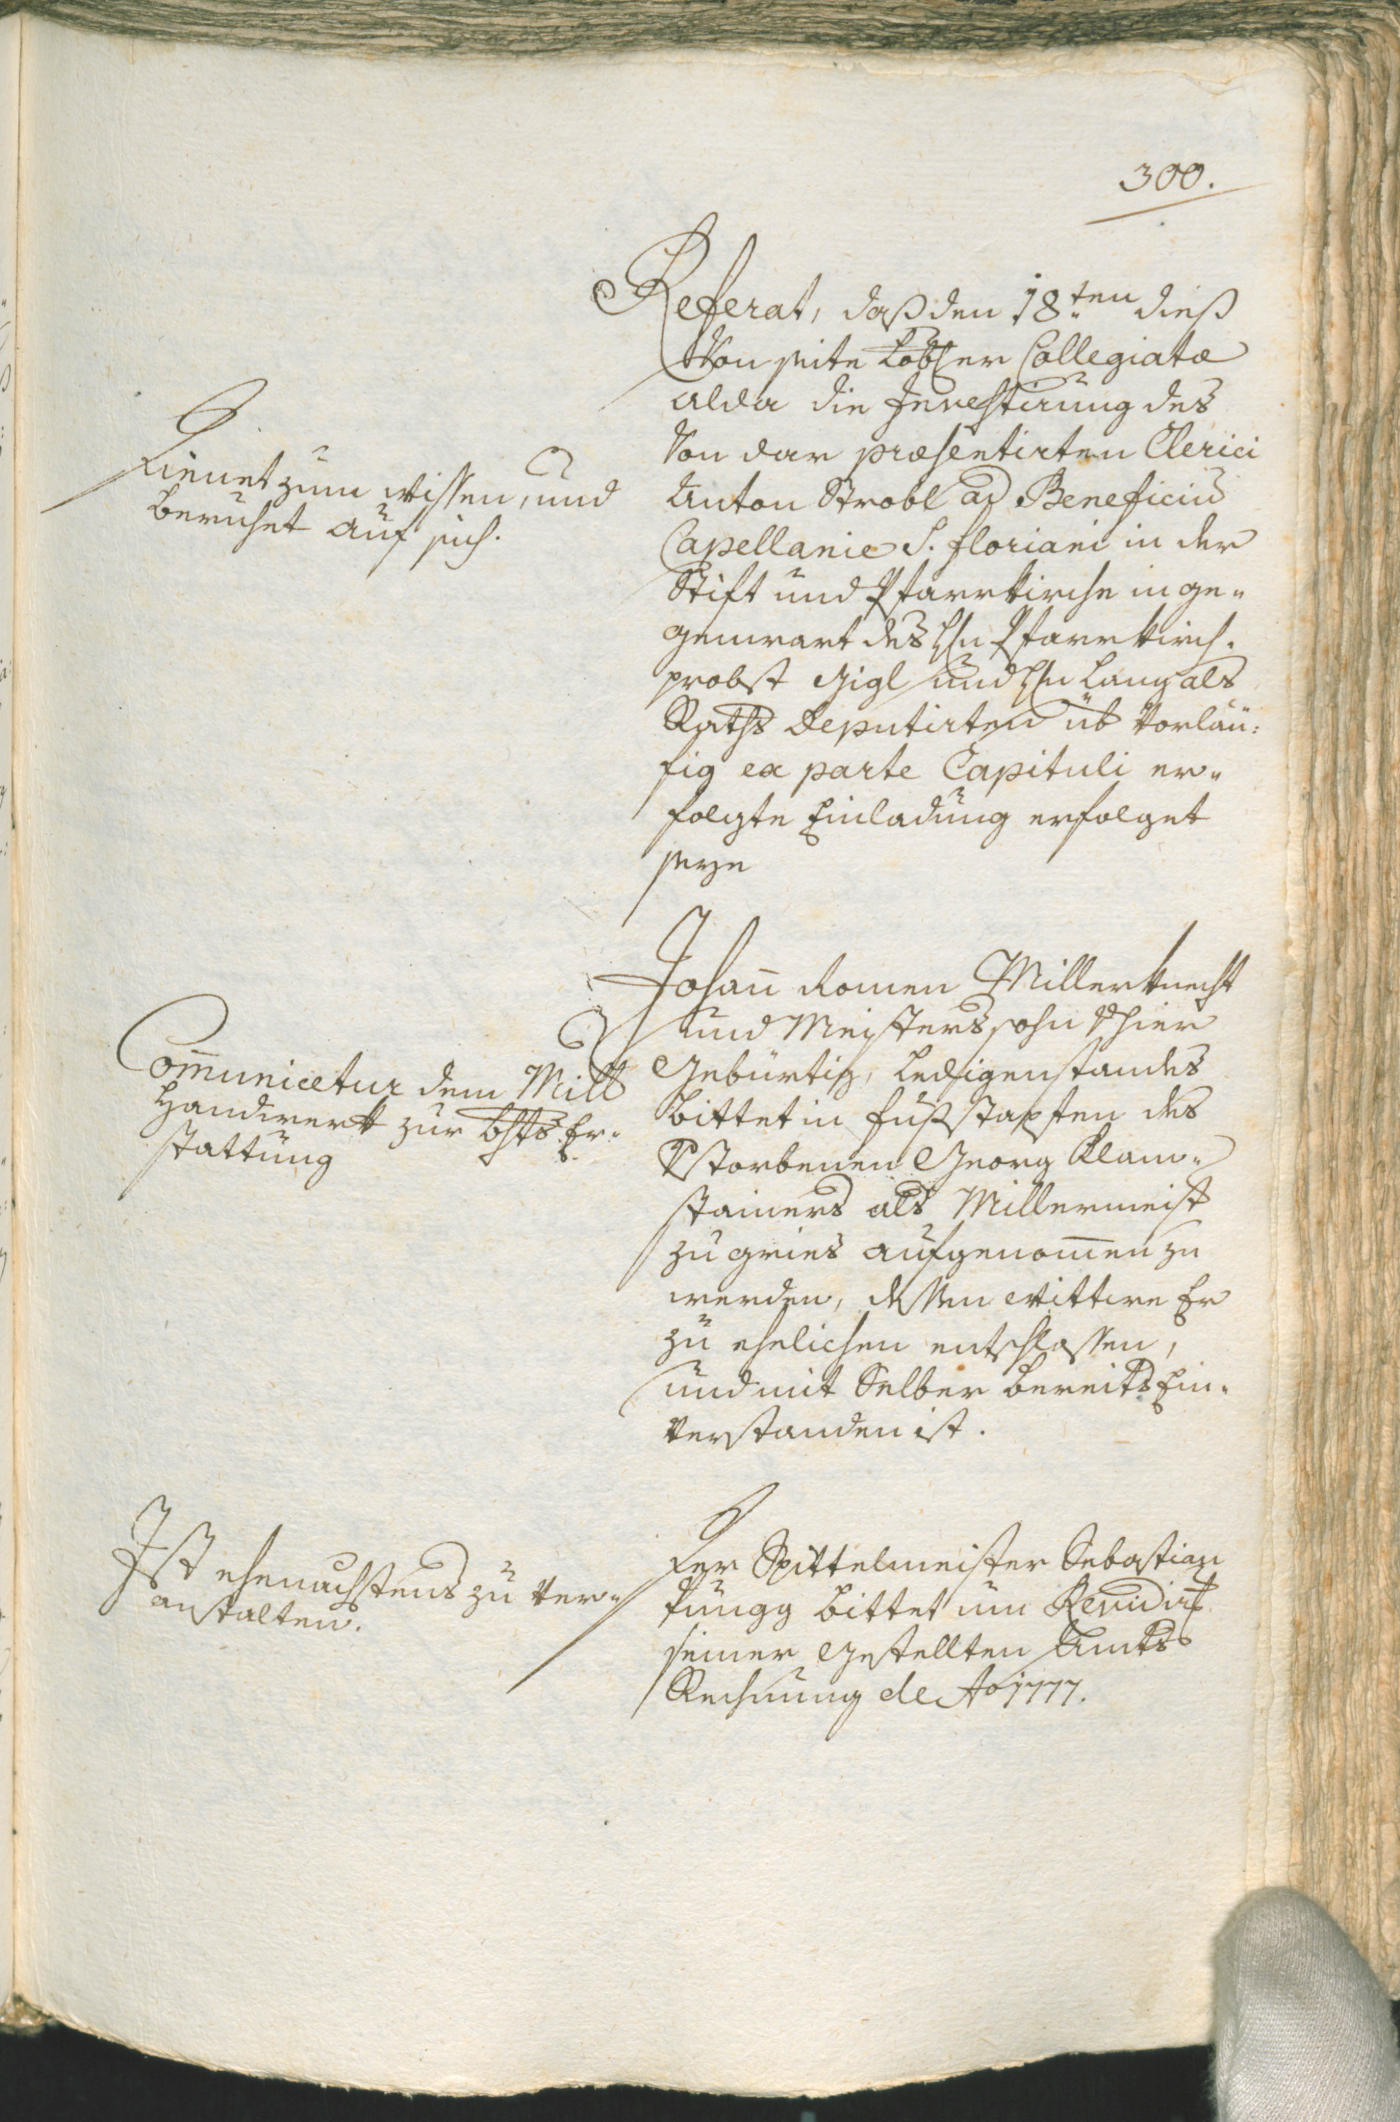 300.
Referat, daß den 18.ten dieß
Von seite Löbler Collegiatæ
alda die Investirung des
Von dar præsentirten Clerici
Anton Strobl ad Beneficiũ
Capellaniæ S. floriani in der
Stift und Pfarrkirche in ge-
genwart des Hn Pfarrkirch-
probst Gigl und Hn Lang als
Raths Deputirten üb vorläu-
fig ex parte Capituli er-
folgte Einladung erfolget
seye
Dienet zum wissen, und
beruhet auf sich.
Johan̄ Romen Millerknecht
und Meisterssohn Vhier
Gebürtig, ledigenstandes
bittet in fußstapfen des
Vstorbenen Georg Klam-
stainers als Millermeist
zu gries aufgenom̄en zu
werden, dessen Wittwe Er
zu ehelichen entschlossen,
und mit Selber bereits Ein-
verstanden ist.
Com̄unicetur dem Mill
Handwerk zur Bhts Er-
stattung
Der Spittelmeister Sebastian
bittet um Revidir
seiner gestellten Amts
Rechnung de Ao 1777.
Ist ehenächstens zu ver-
anstalten.